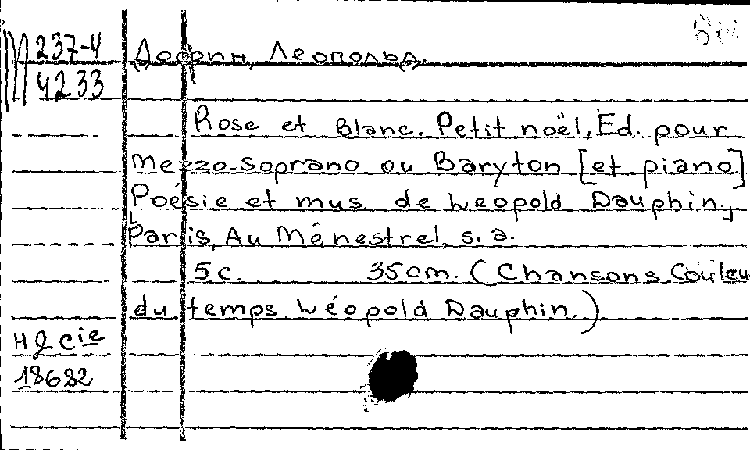 237-4 Дофин, Леопольд.
4233
Rose et Blanc. Petit noël, Ed. pour
mezzo-soprano ou Baryton [et piano]
Poésie et mus. de Léopold Dauphin.
Paris, Au Ménestrel, s. a.
5 c. 35 cm. (Chansons Couleu
du temps. Léopold Dauphin.)
H & Cie
18682